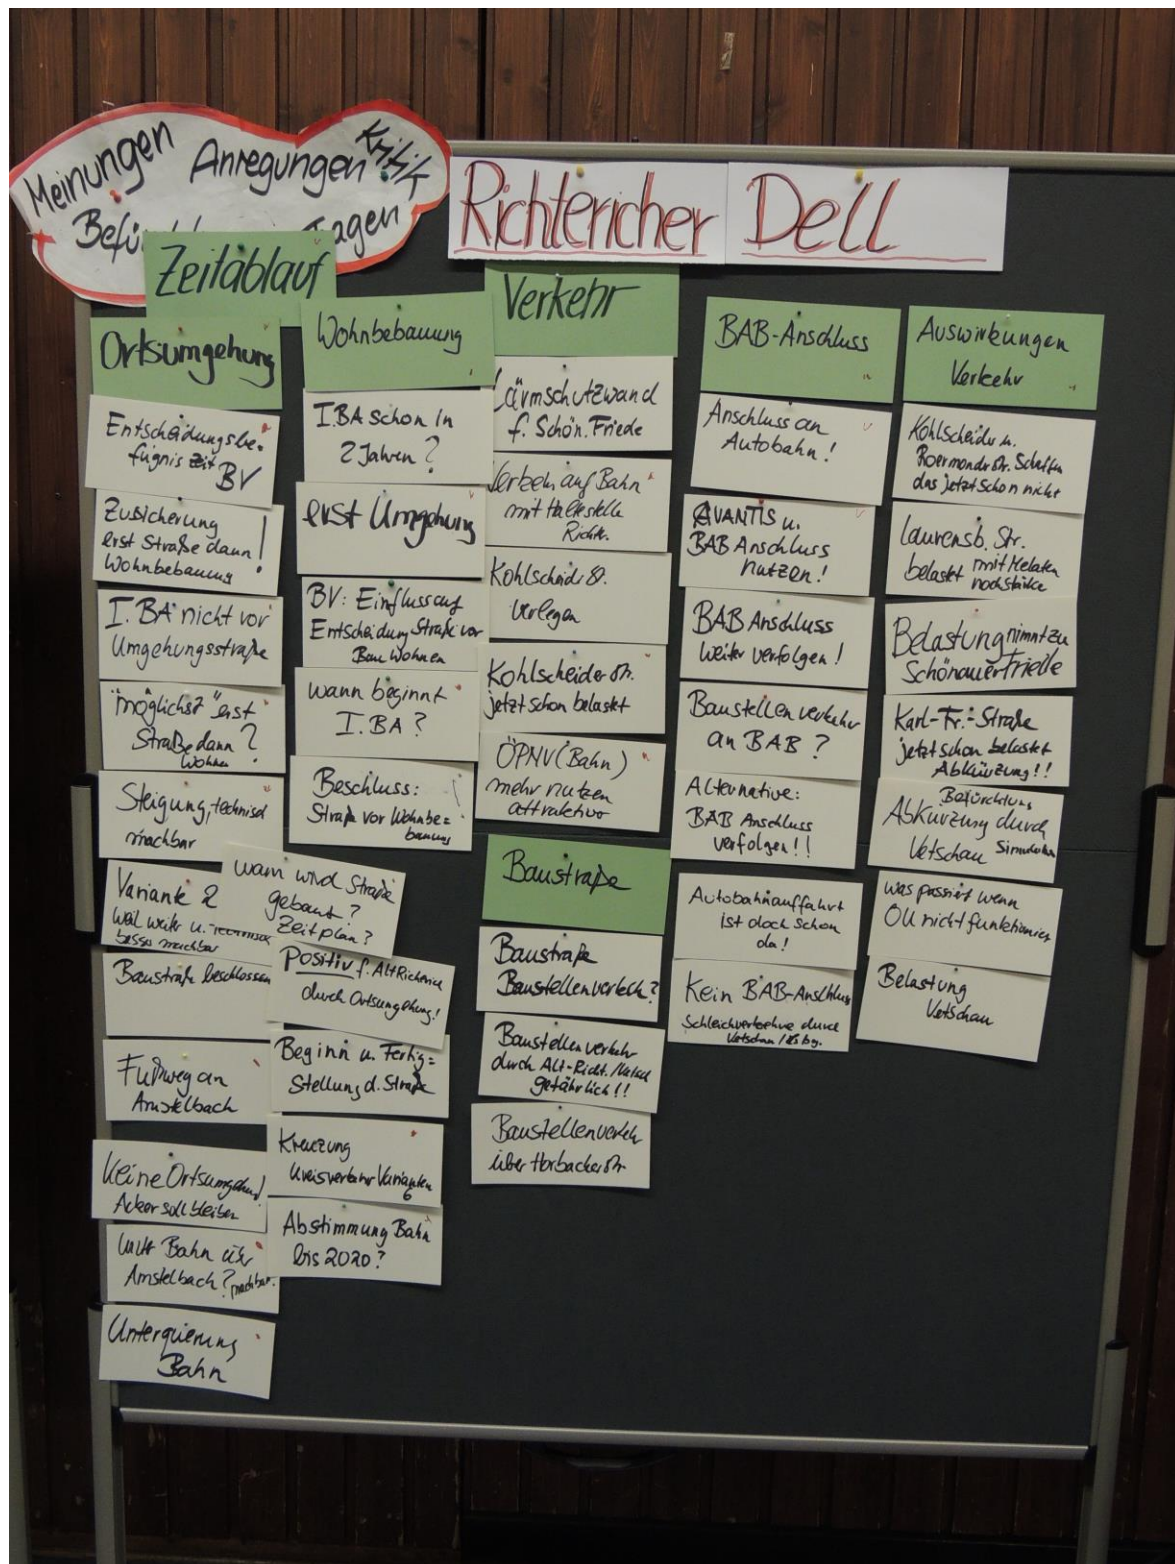 Meinungen Anregungen Kritik
Richtericher Dell
Zeitablauf
Ortsumgehung
Entscheidungsbe-
fugnis zeit BV
Zusicherung
erst Straße dann!
Wohnbebauung
I. BA nicht vor
Umgehungsstraße
"möglichst" erst
Straße dann?
Wohnen
Steigung, technisch
machbar
Variante 2
weil weiter u. technisch
besser machbar
Baustraße beschlossen
Fußweg an
Amstelbach
Keine Ortsumgehung!
Acker soll bleiben
Bahn
Amstelbach? machbar.
Unterquerung
Bahn
Wohnbebauung
I. BA schon in
2 Jahren?
erst Umgehung
BV: Einfluss auf
Entscheidung Straße vor
Bau Wohnen
wann beginnt
I. BA?
Beschluss:
Straße vor Wohnbe=
bauung
wann wird Straße
gebaut?
Zeitplan?
Positiv f. Alt Richterich
durch Ortsumgehung!
Beginn u. Fertig=
stellung d. Straße
Kreuzung
Kreisverkehr Varianten
6
Abstimmung Bahn
bis 2020?
Verkehr
Lärmschutzwand
f. Schön. Friede
auf Bahn
mit Haltestelle
Richte.
Kohlscheider St.
verlegen
Kohlscheider Str.
jetzt schon belastet
ÖPNV (Bahn)
mehr nutzen
attraktiver
Baustraße
Baustraße
Baustellenverkehr?
Baustellenverkehr
durch Alt-Richt.
gefährlich!!
Baustellenverkehr
über Horbacherstr.
BAB-Anschluss
Anschluss an
Autobahn!
AVANTIS u.
BAB Anschluss
nutzen!
BAB Anschluss
weiter verfolgen!
Baustellenverkehr
an BAB?
Alternative:
BAB Anschluss
verfolgen!!
Autobahnauffahrt
ist doch schon
da!
Kein BAB-Anschluss
Schleichverkehre durch
Vetschau
Auswirkungen
Verkehr
Kohlscheider u.
Roermonder Str. Schaffen
das jetzt schon nicht
Laurensb. Str.
belastet mit Melaten
noch stärker
Belastung nimmt zu
Schönauer Friede
Karl-Fr.-Straße
jetzt schon belastet
Abkürzung!!
Befürchtung
Abkürzung durch
Vetschau
was passiert wenn
OU nicht funktioniert
Belastung
Vetschau